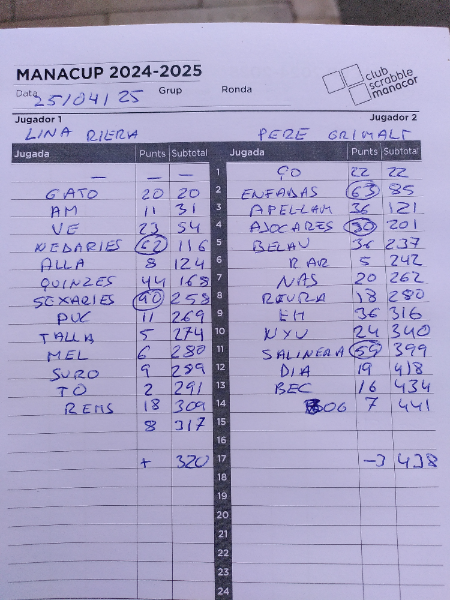 MANACUP 2024-2025
club scrabble manacor
Data 25/04/25 Grup Ronda
Jugador 1 Jugador 2
LINA RIERA PERE GRIMALT
Jugada Punts Subtotal Jugada Punts Subtotal
— — — 1 ÇO 22 22
GATO 20 20 2 ENFADAS 63 85
AM 11 31 3 APELLAM 36 121
VE 23 54 4 AJOCARES 80 201
NEDARIES 62 116 5 BELAU 36 237
ALLA 8 124 6 RAR 5 242
QUINZES 44 168 7 NAS 20 262
SEXARIES 90 258 8 REURA 18 280
PUC 11 269 9 EH 36 316
TALLA 5 274 10 NYU 24 340
MEL 6 280 11 SALINERA 59 399
SURO 9 289 12 DIA 19 418
TO 2 291 13 BEC 16 434
REMS 18 309 14 OG 7 441
8 317 15
16
+ 320 17 -3 438
18
19
20
21
22
23
24